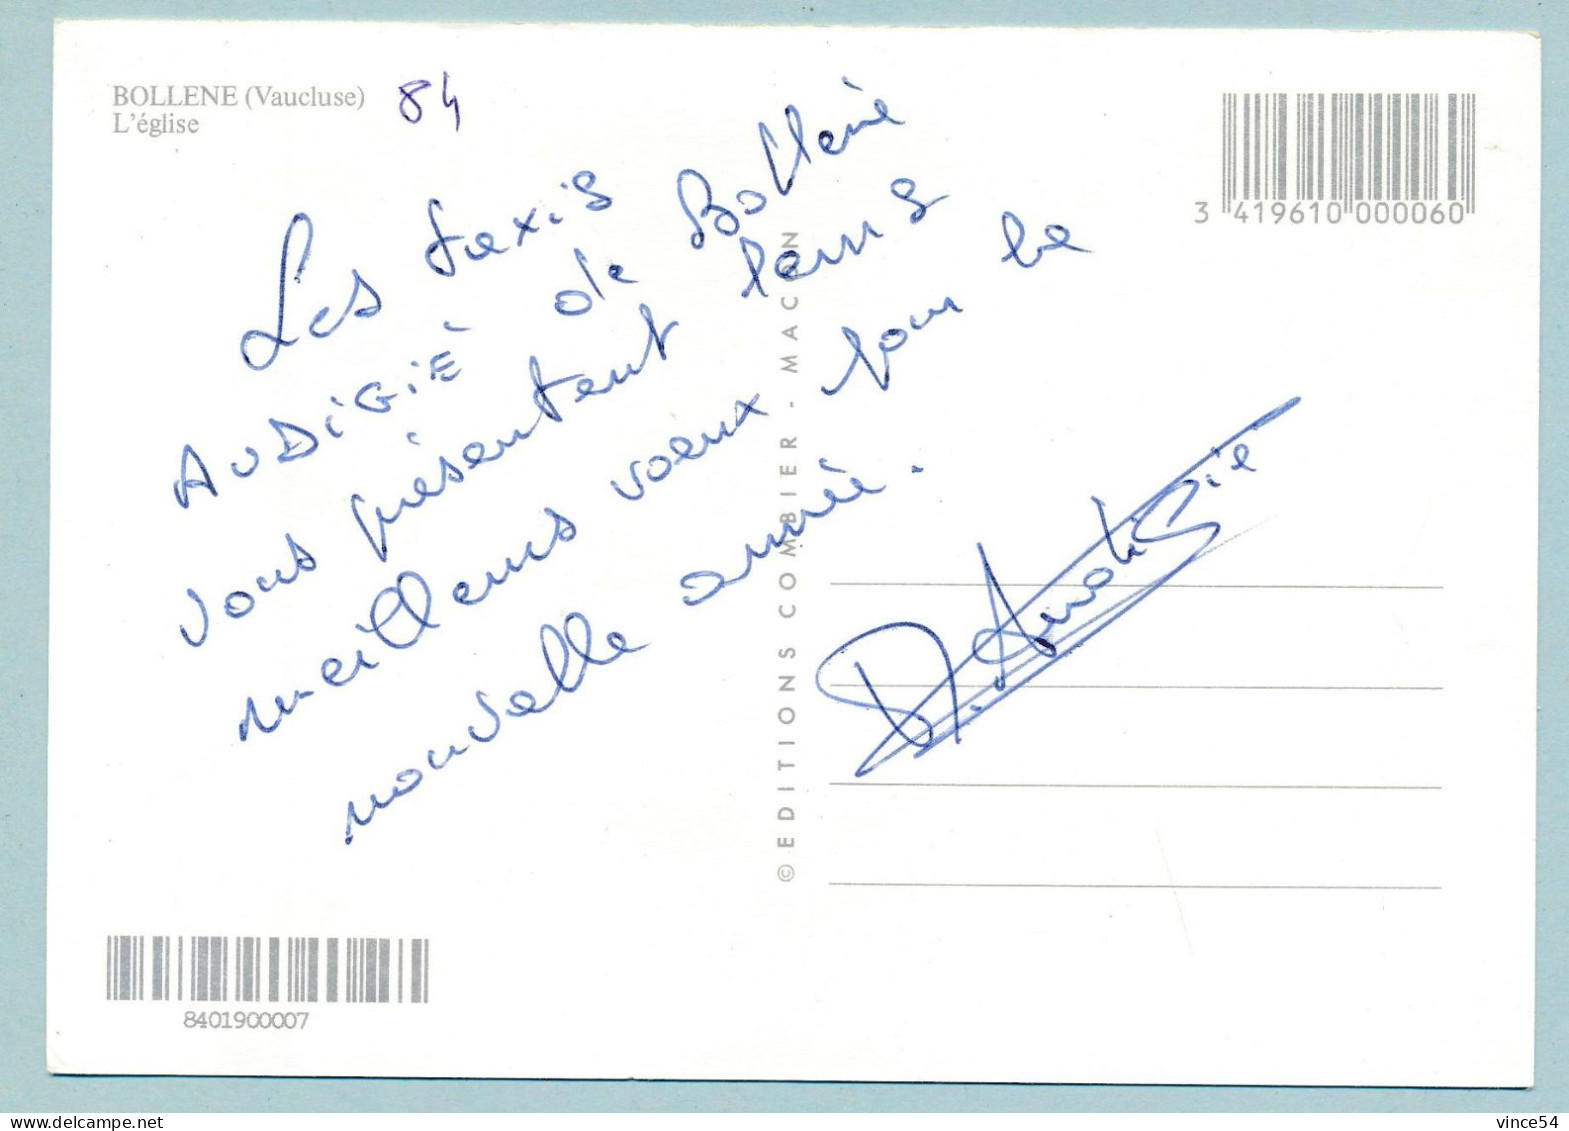 BOLLENE (Vaucluse)
L'église
84
3 419610 000060
Les taxis
AUDIGIÉ de Bollène
vous présentent leurs
meilleurs voeux pour la
nouvelle année.
© EDITIONS COMBIER - MACON
8401900007
delcampe.net
vince54